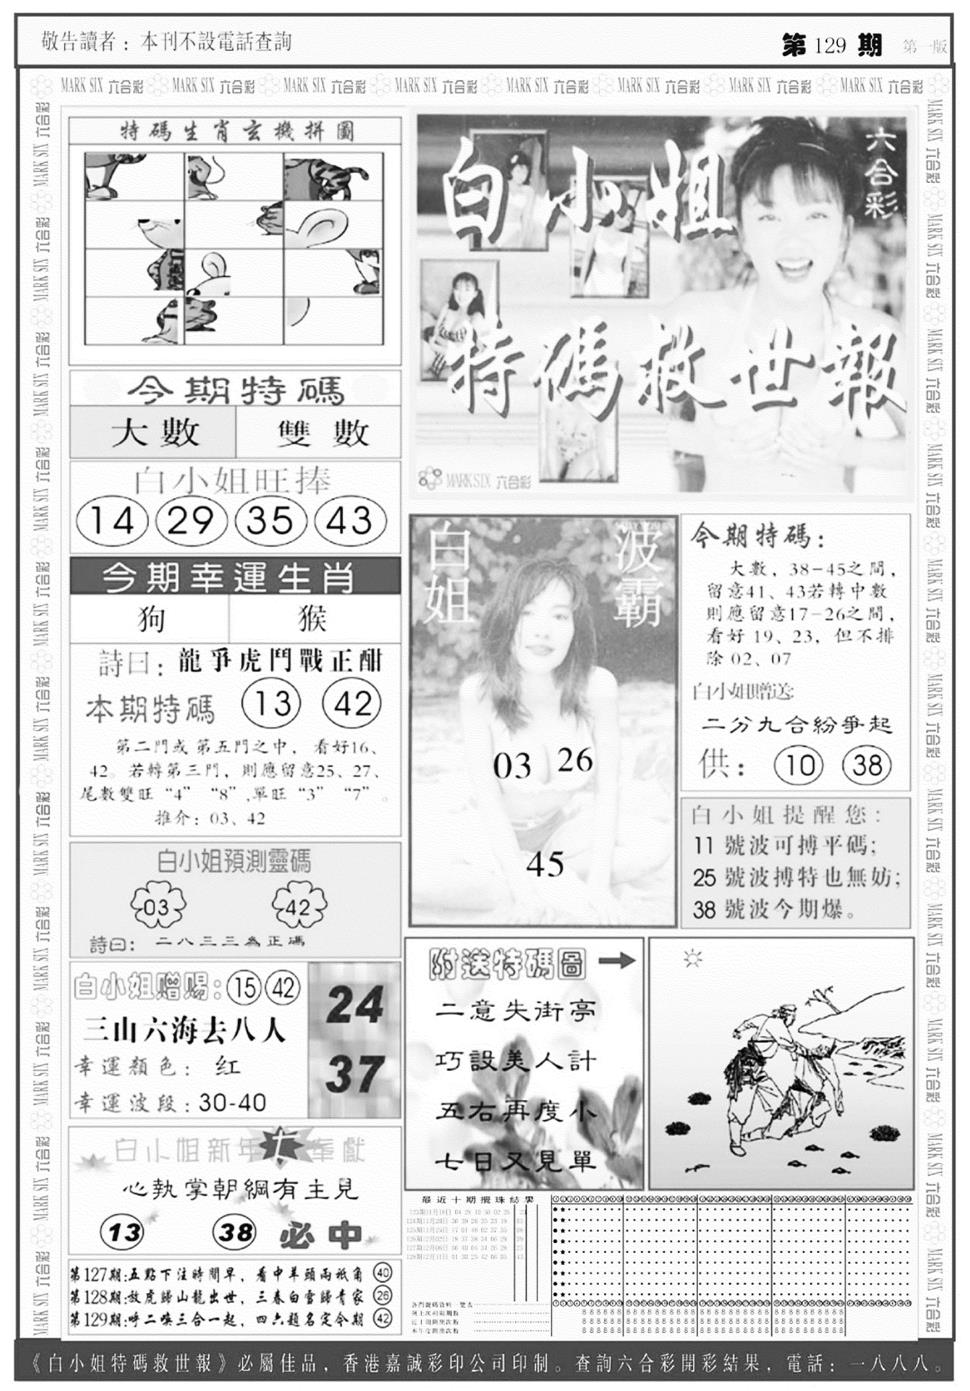 敬告讀者：本刊不設電話查詢
第 129 期 第一版
MARK SIX 六合彩 MARK SIX 六合彩 MARK SIX 六合彩 MARK SIX 六合彩 MARK SIX 六合彩 MARK SIX 六合彩 MARK SIX 六合彩 MARK SIX 六合彩
特碼生肖玄機拼圖
今期特碼
大數 雙數
白小姐旺捧
14 29 35 43
今期幸運生肖
狗 猴
詩曰：龍爭虎鬥戰正酣
本期特碼 13 42
第二門或第五門之中，看好16、
42。若轉第三門，則應留意25、27、
尾數雙旺“4” “8”,單旺“3” “7”。
推介：03、42
白小姐預測靈碼
03 42
詩曰：二八三三為正碼
白小姐贈賜：15 42
三山六海去八人
幸運顏色：红
幸運波段：30-40
24
37
白小姐新年奉獻
心執掌朝綱有主見
13 38 必中
第127期:五點下注時間早，看中羊頭兩袛角 40
第128期:放虎歸山龍出世，三春白雪歸青家 26
第129期:呼二喚三合一起，四六題名定今期 42
六合彩
白小姐
特碼救世報
MARK SIX 六合彩
白姐
波霸
03 26
45
今期特碼：
大數，38-45之間，
留意41、43若轉中數
則應留意17-26之間，
看好 19、23，但不排
除 02、07
白小姐贈送:
二分九合紛爭起
供：10 38
白小姐提醒您：
11 號波可搏平碼;
25 號波搏特也無妨;
38 號波今期爆。
附送特碼圖
二意失街亭
巧設美人計
五右再度小
七日又見單
最近十期攪珠結果
《白小姐特碼救世報》必屬佳品，香港嘉誠彩印公司印制。查詢六合彩開彩結果，電話：一八八八。